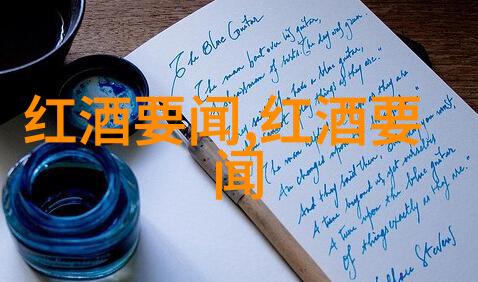 The Blue Guitar
The man bent over his guitar,
A shearsman of sorts. The day was green.
They said, "You have a blue guitar,
You do not play things as they are."
The man replied, "Things as they are
Are changed upon the blue guitar."
And they said then, "But play, you must,
A tune beyond us, yet ourselves,
A tune upon the blue guitar
Of things exactly as they are."
Wallace Stevens
红酒要闻,红酒要
闻